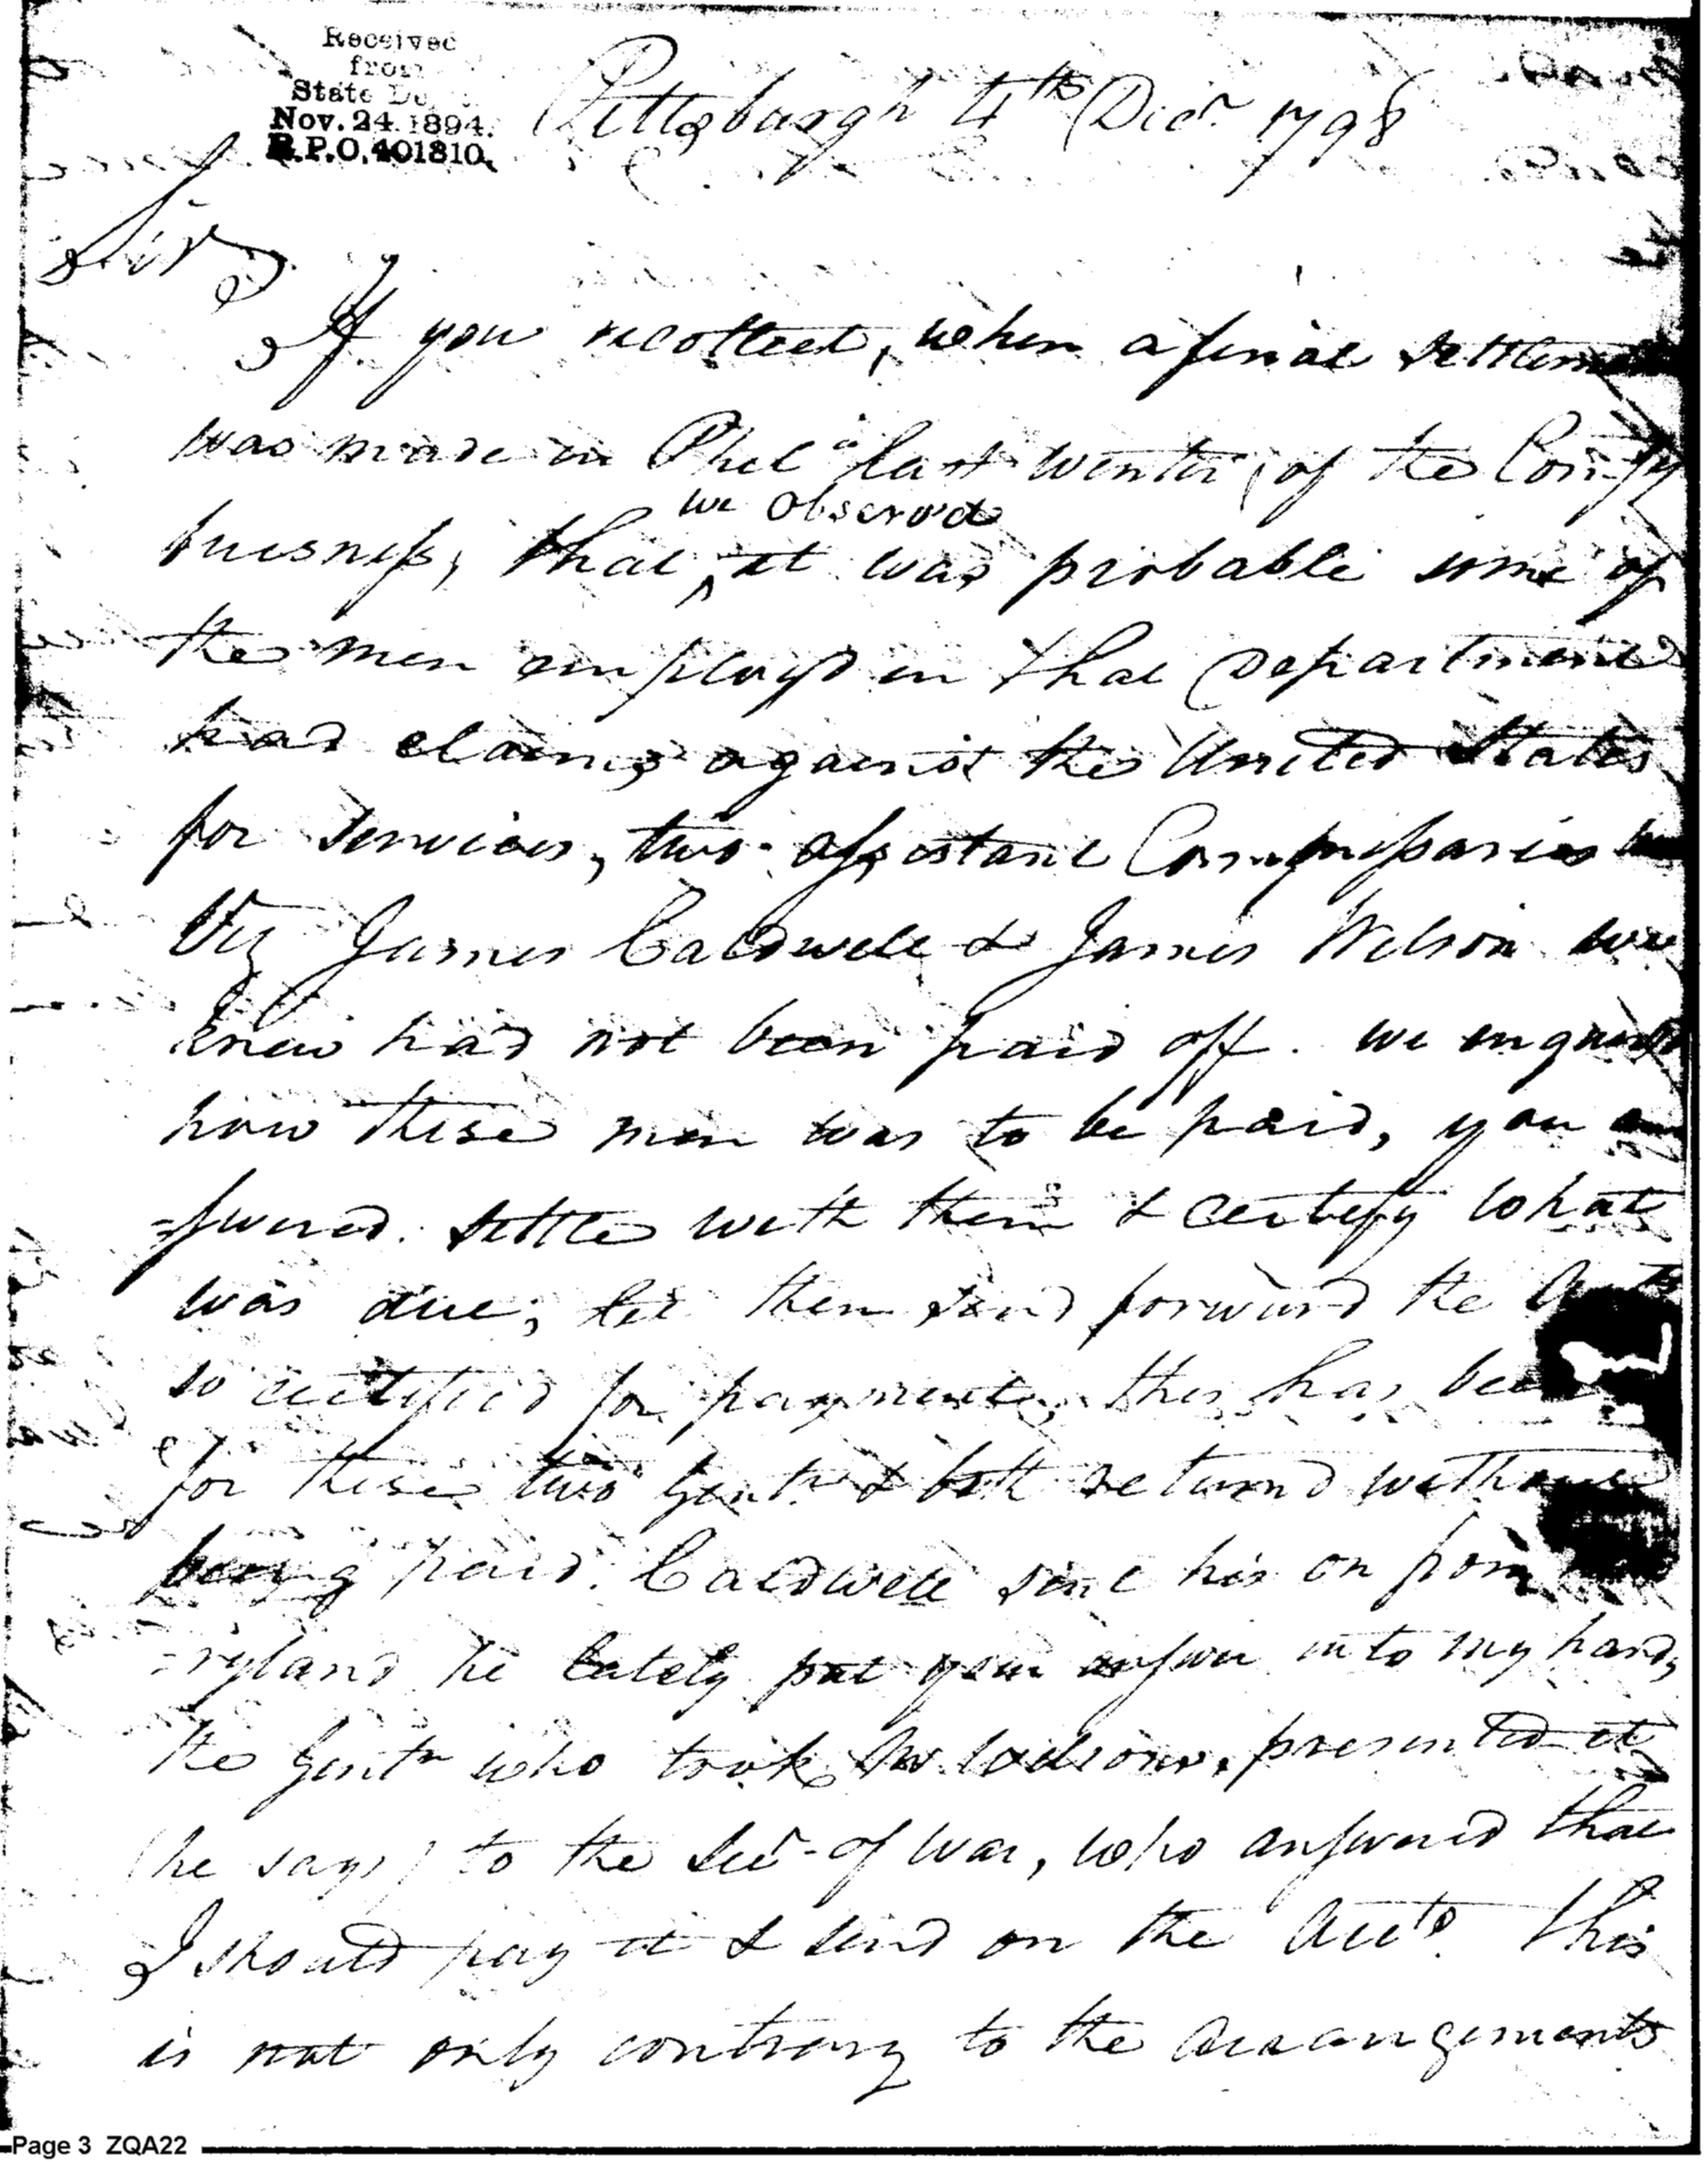 Received
from
State De
Nov. 24. 1894.
R.P.O. 401810.
Pittsburgh 4th Decr 1798
Sir
If you recollect, when a final settlem
was made in Phila last winter, of the
we observd
buisness, that ^ it was probable some of
the men employd in that Department
had claims against the United States
for services, two assistant Commissaries
Viz James Caldwell & James Wilson we
knew had not been paid off. we enquired
how these men was to be paid, you an
=swered. settle with them & certify what
was due, let them send forward the
so certified for payment, this has been
for these two Gentn & both returnd without
being paid. Caldwell sent his on from
=ryland he lately put your answer into my hands
the Gentn who took Mr. Wilsons, presented it
(he says) to the Secr of War, who answered that
I should pay it & send on the Accts. This
is not only contrary to the arrangements
Page 3 ZQA22